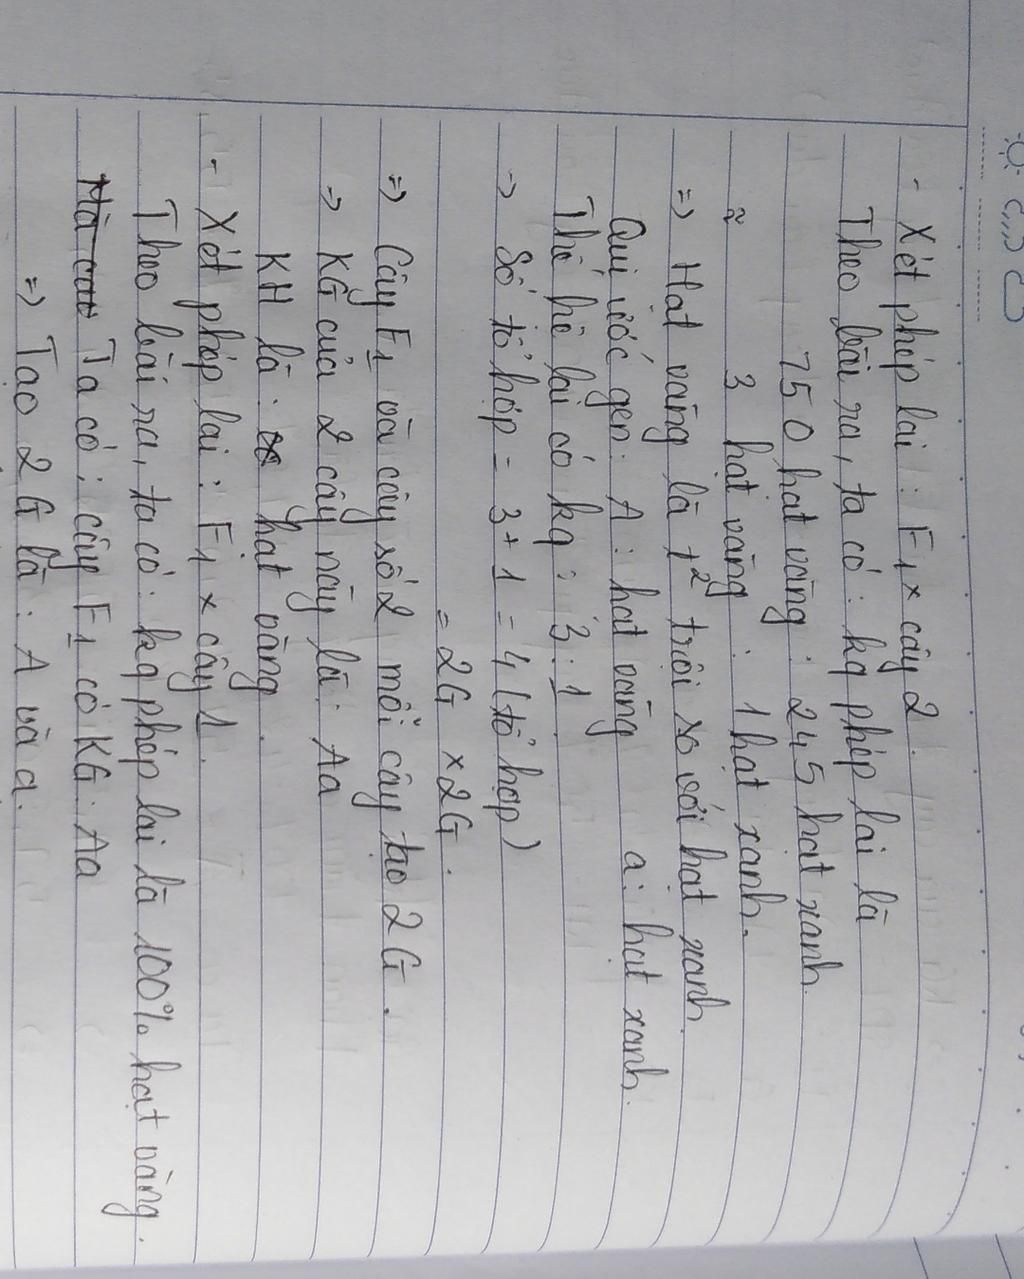 - Xét phép lai : F1 × cây 2.
Theo bài ra, ta có : kq phép lai là
750 hạt vàng : 245 hạt xanh.
≈ 3 hạt vàng : 1 hạt xanh.
=> Hạt vàng là t² trội so với hạt xanh.
Qui ước gen: A : hạt vàng a : hạt xanh.
Thế hệ lai có kq : 3 : 1.
-> Số tổ hợp = 3 + 1 = 4 (tổ hợp)
= 2G × 2G.
=> Cây F1 và cây số 2 mỗi cây tạo 2 G.
-> KG của 2 cây này là: Aa
KH là : hạt vàng.
- Xét phép lai : F1 × cây 1.
Theo bài ra, ta có : kq phép lai là 100% hạt vàng.
Ta có : cây F1 có KG: Aa
=> Tạo 2 G là : A và a.